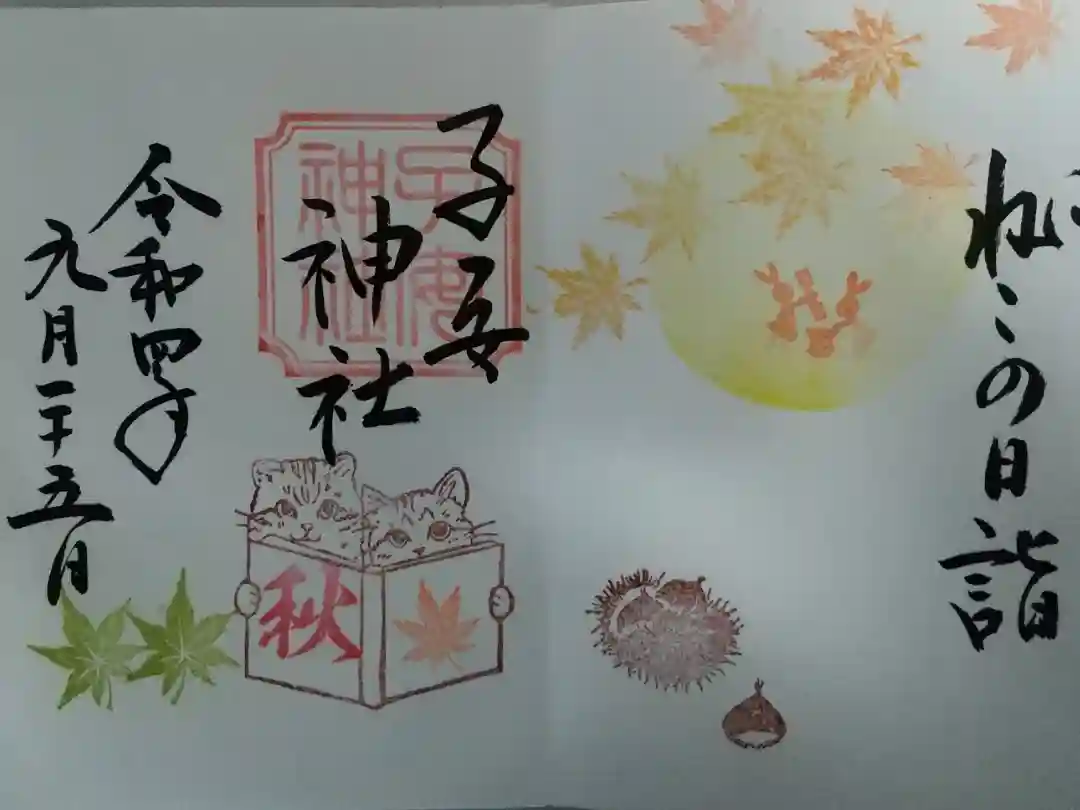 ねこの日詣
子安
神社
子安
神社
令和四年
九月二十五日
秋